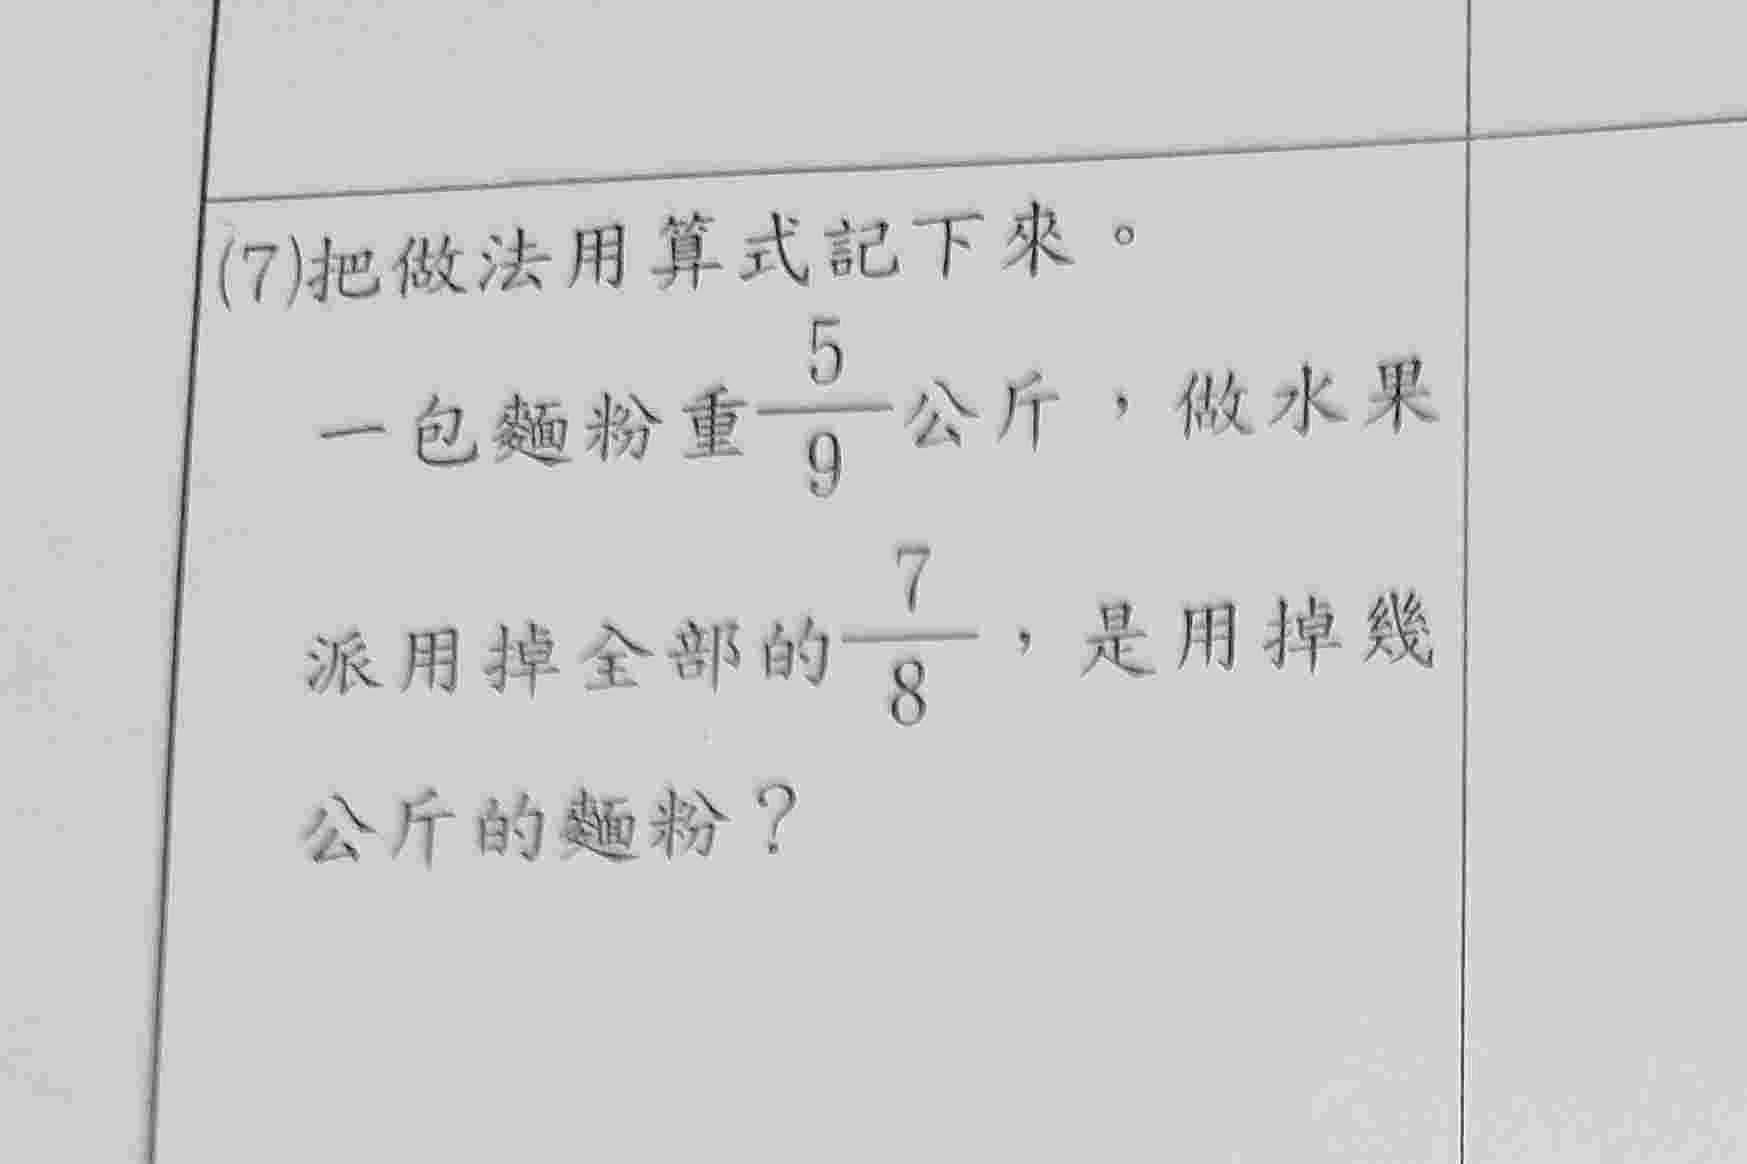 (7)把做法用算式記下來。
一包麵粉重5/9公斤，做水果
派用掉全部的7/8，是用掉幾
公斤的麵粉？